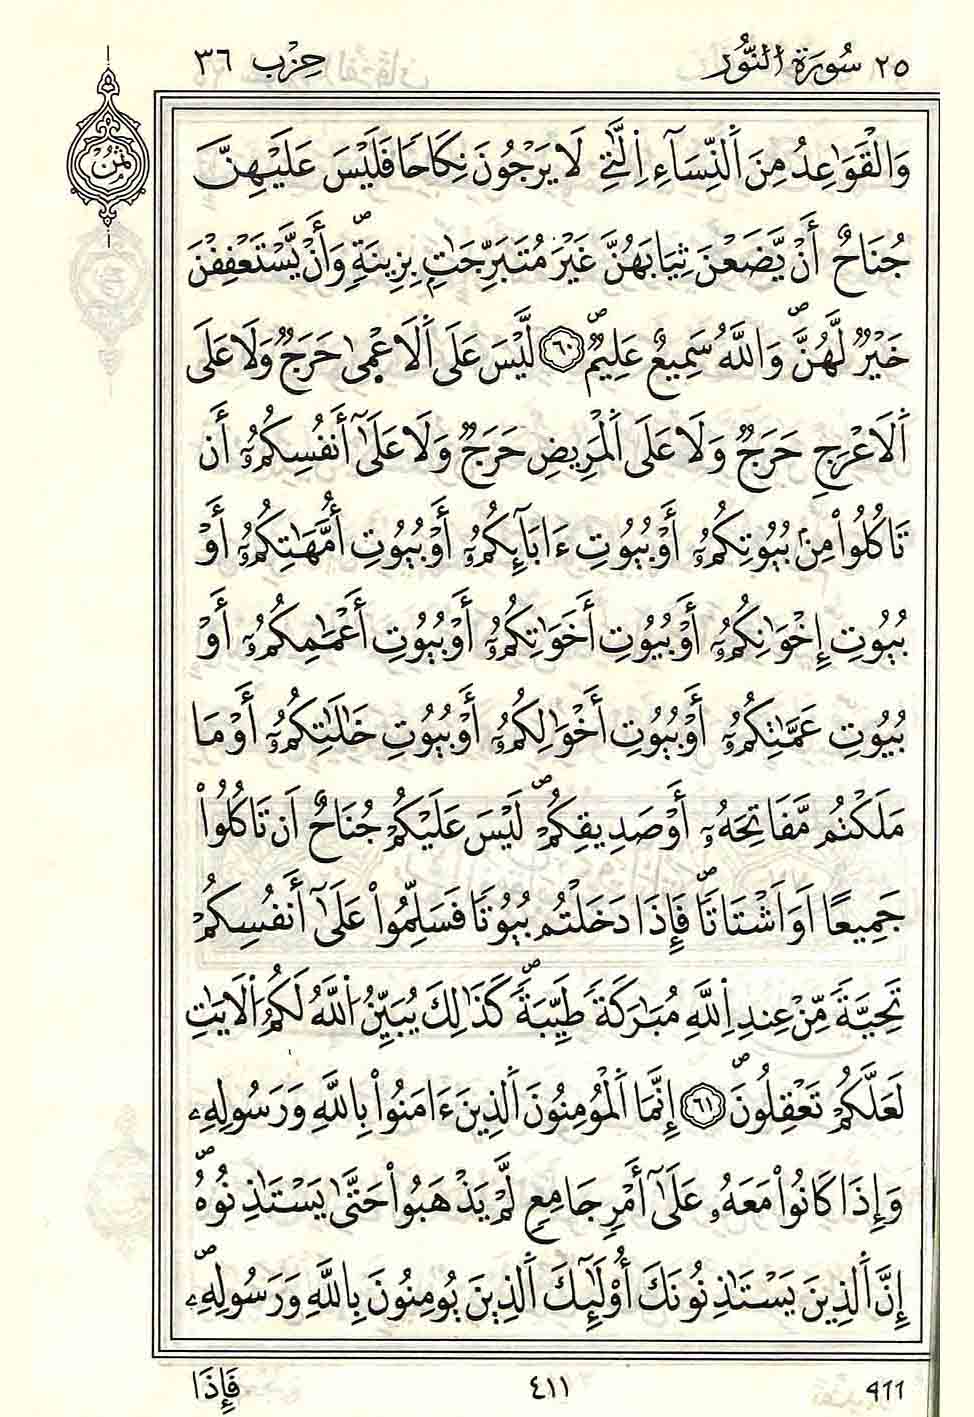 ٢٥ سُورَةُ النُّور حِزْب ٣٦
ثُمُن
وَالْقَوَٰعِدُ مِنَ اَ۬لنِّسَآءِ اِ۬لتِے لَا يَرْجُونَ نِكَاحاٗ فَلَيْسَ عَلَيْهِنَّ
جُنَاحٌ أَنْ يَّضَعْنَ ثِيَابَهُنَّ غَيْرَ مُتَبَرِّجَٰتِۢ بِزِينَةٖۖ وَأَنْ يَّسْتَعْفِفْنَ
خَيْرٞ لَّهُنَّۖ وَاللَّهُ سَمِيعٌ عَلِيمٞۖ ٦٠ لَّيْسَ عَلَى اَ۬لَاعْم۪يٰ حَرَجٞ وَلَا عَلَى
اَ۬لَاعْرَجِ حَرَجٞ وَلَا عَلَى اَ۬لْمَرِيضِ حَرَجٞ وَلَا عَلَىٰٓ أَنفُسِكُمُۥٓ أَن
تَاكُلُواْ مِنۢ بُيُوتِكُمُۥٓ أَوْ بُيُوتِ ءَابَآئِكُمُۥٓ أَوْ بُيُوتِ أُمَّهَٰتِكُمُۥٓ أَوْ
بُيُوتِ إِخْوَٰنِكُمُۥٓ أَوْ بُيُوتِ أَخَوَٰتِكُمُۥٓ أَوْ بُيُوتِ أَعْمَٰمِكُمُۥٓ أَوْ
بُيُوتِ عَمَّٰتِكُمُۥٓ أَوْ بُيُوتِ أَخْوَٰلِكُمُۥٓ أَوْ بُيُوتِ خَٰلَٰتِكُمُۥٓ أَوْ مَا
مَلَكْتُم مَّفَاتِحَهُۥٓ أَوْ صَدِيقِكُمْۖ لَيْسَ عَلَيْكُمْ جُنَاحٌ اَن تَاكُلُواْ
جَمِيعًا اَوَ اَشْتَاتاٗۖ فَإِذَا دَخَلْتُم بُيُوتاٗ فَسَلِّمُواْ عَلَىٰٓ أَنفُسِكُمْ
تَحِيَّةٗ مِّنْ عِندِ اِ۬للَّهِ مُبَٰرَكَةٗ طَيِّبَةٗۖ كَذَٰلِكَ يُبَيِّنُ اُ۬للَّهُ لَكُمُ اُ۬لَايَٰتِ
لَعَلَّكُمْ تَعْقِلُونَۖ ٦١ إِنَّمَا اَ۬لْمُومِنُونَ اَ۬لذِينَ ءَامَنُواْ بِاللَّهِ وَرَسُولِهِۦ
وَإِذَا كَانُواْ مَعَهُۥ عَلَىٰٓ أَمْرٖ جَامِعٖ لَّمْ يَذْهَبُواْ حَتَّىٰ يَسْتَٰذِنُوهُۖ
إِنَّ اَ۬لذِينَ يَسْتَٰذِنُونَكَ أُوْلَٰٓئِكَ اَ۬لذِينَ يُومِنُونَ بِاللَّهِ وَرَسُولِهِۦۖ
٩٦٦ ٤١١ فَإِذَا